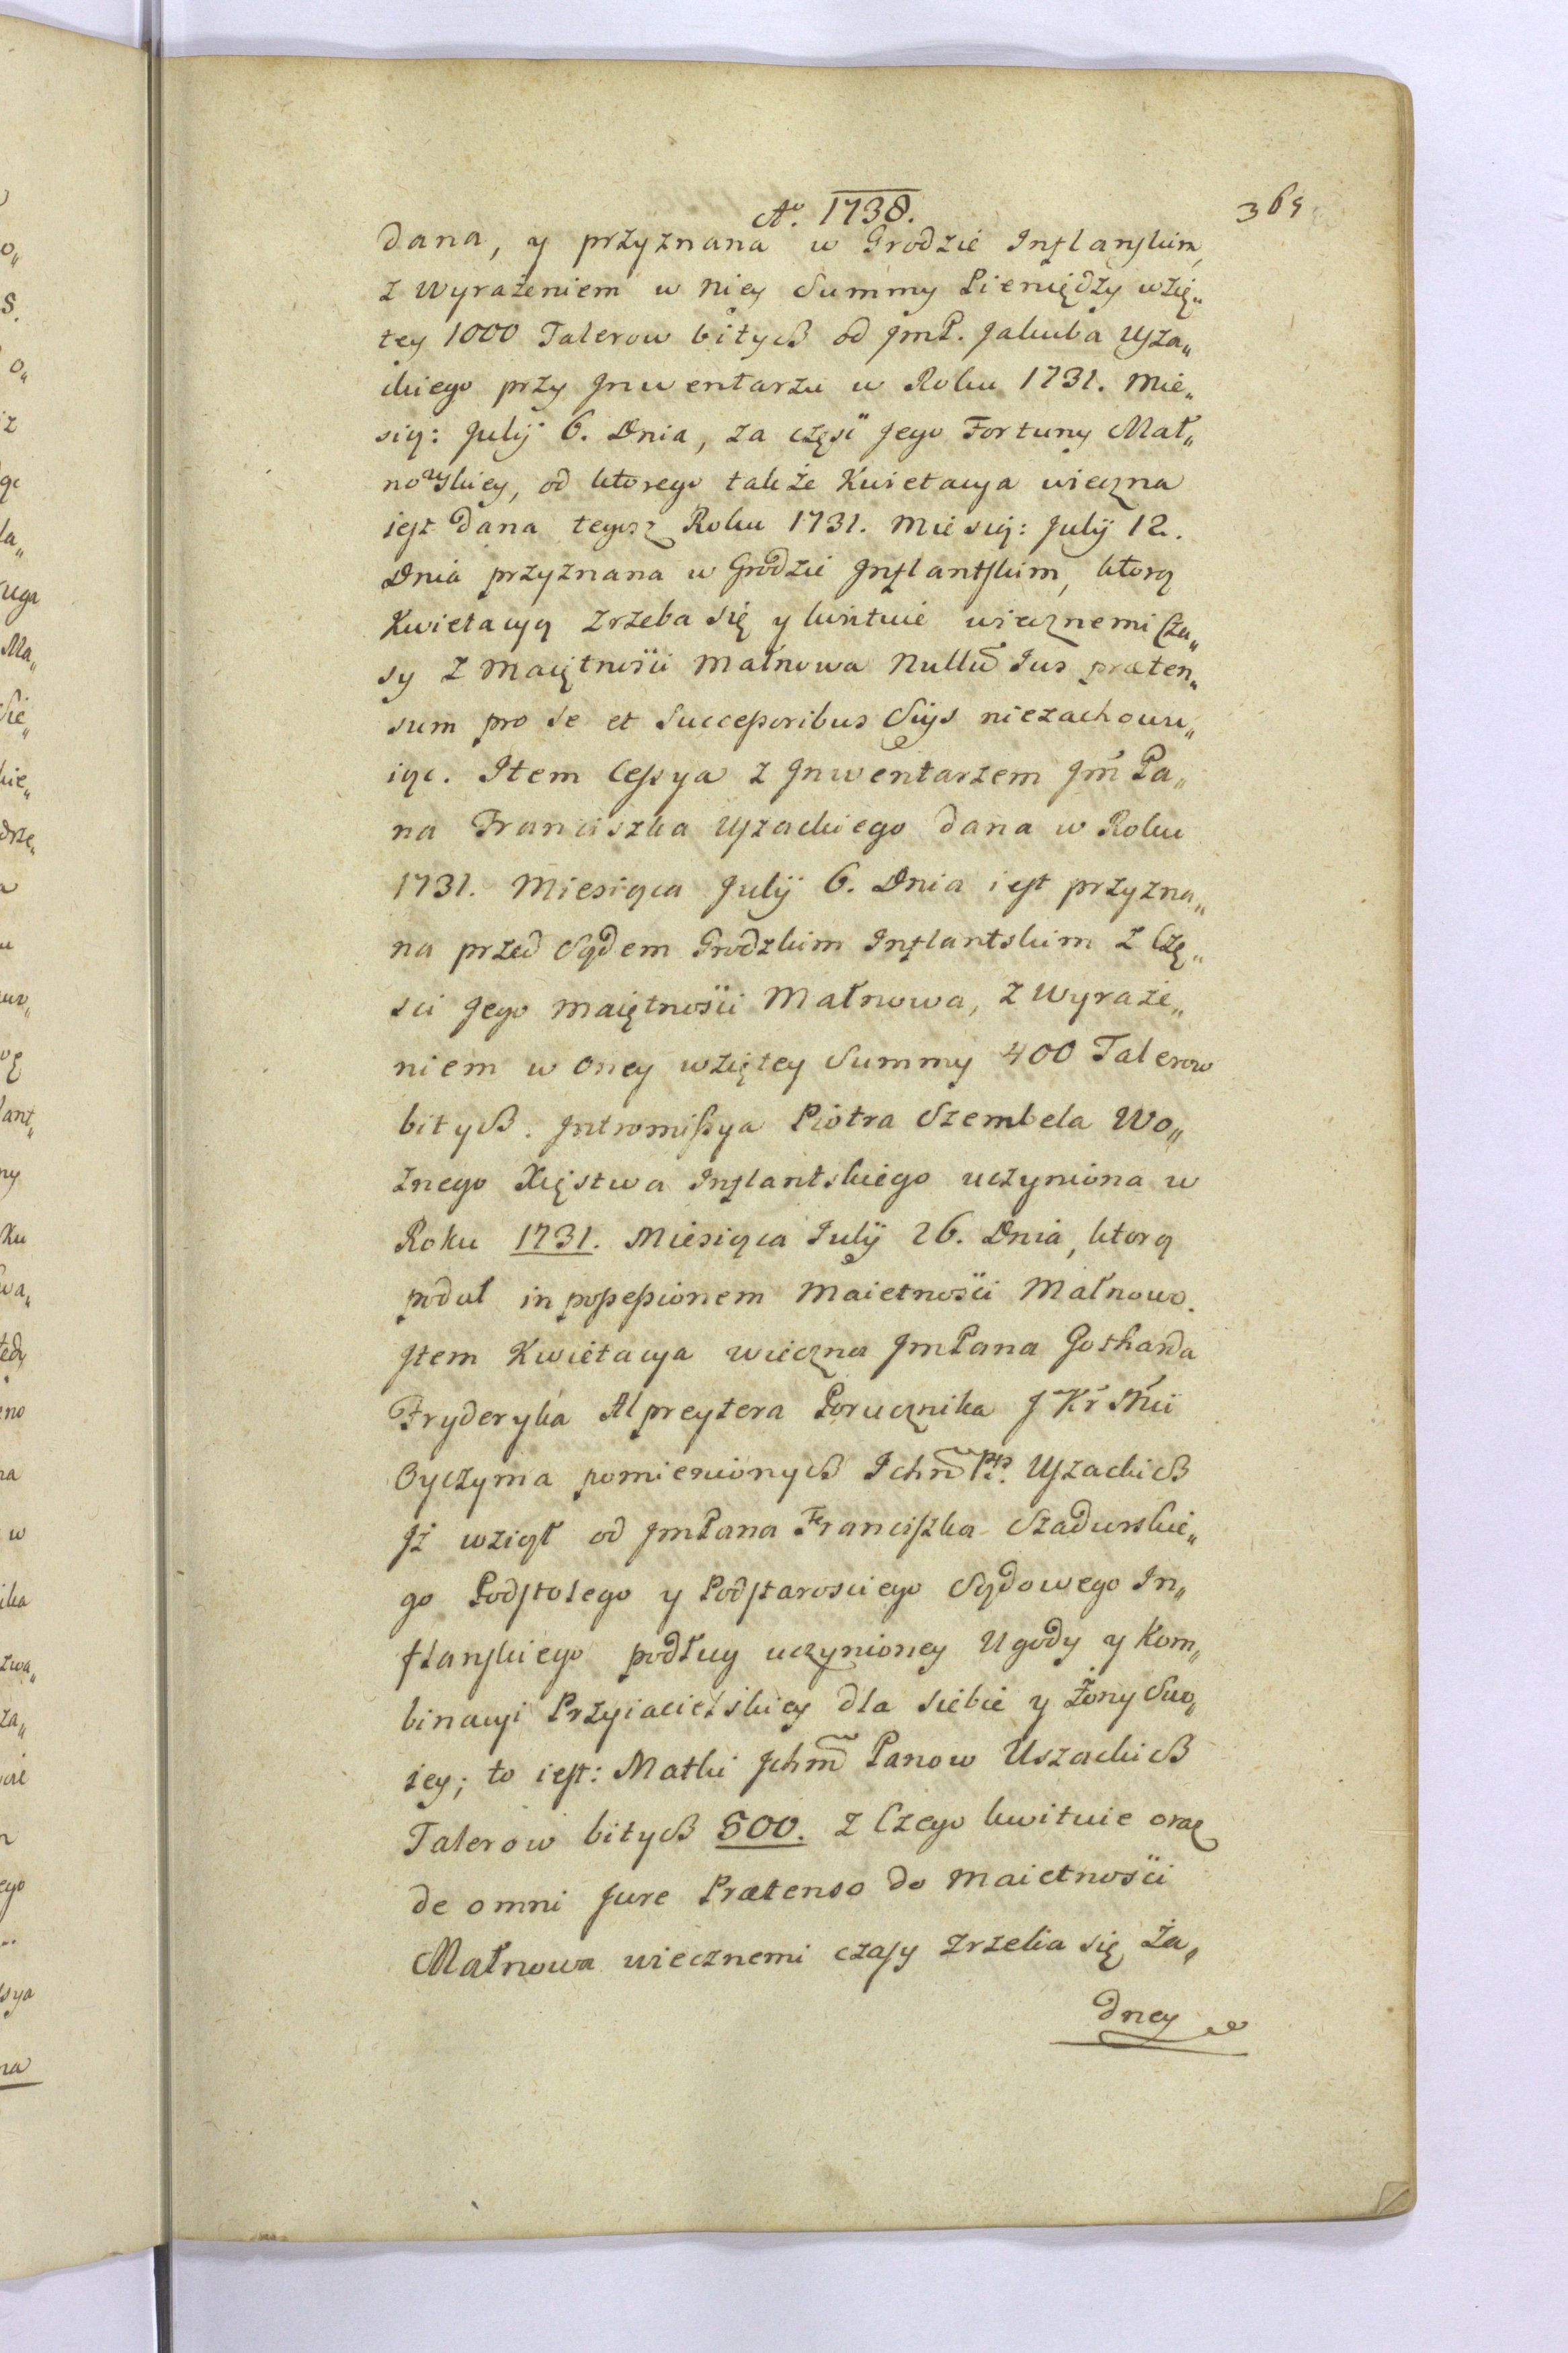 Aº. 1738.
365
dana, y przyznana w Grodzie Inflanskim,
z wyrażeniem w niey Summy Pieniędzy wzię„
tey 1000 Talerow bitych od JmP. Jakuba Usza„
ckiego przy Jnwentarzu w Roku 1731. Mie„
siąc: Julij 6. Dnia, za część Jego Fortuny Mał„
nowskiey, od ktorego także Kwietacya wieczna
iest dana tegosz Roku 1731. Miesiąc: Julij 12.
Dnia przyznana w Grodzie Jnflantskim, ktorą
Kwietacyą zrzeka się y kwituie wiecznemi Cza„
sy z Maiętności Małnowa Nullũ Ius præten„
sum pro se et Successoribus Suis niezachowu„
iąc. Item Cessya z Jnwentarzem Jm̃ Pa„
na Franciszka Uszackiego dana w Roku
1731. Miesiąca Julij 6. Dnia iest przyzna„
na przed Sądem Grodzkim Inflantskim z Czę„
sci Jego Maiętności Małnowa, z Wyraże„
niem w oney wziętey Summy 400 Talerow
bitych. Jntromissya Piotra Szembela Wo„
znego Xięstwa Inflantskiego uczyniona w
Roku 1731. Miesiąca Julij 26. Dnia, ktorą
podał in possessionem Maietności Małnowo.
Jtem Kwietacya wieczna JmPana Gotharda
Fryderyka Alpreytera Porucznika J Kr Mci
Oyczyma pomienionych Ichm̃ PP. Uszackich
Jż wziął od JmPana Franciszka Szadurskie„
go Podstolego y Podstarosciego Sądowego In„
flanskiego podług uczynioney Ugody y Kom„
binacyi Przyiacielskiey dla siebie y żony Swo„
iey; to iest: Matki Jchm̃ Panow Uszackich
Talerow bitych 500. z Czego kwituie oraz
de omni Jure Prætenso do Maietności
Małnowa wiecznemi czasy zrzeka się ża„
dney